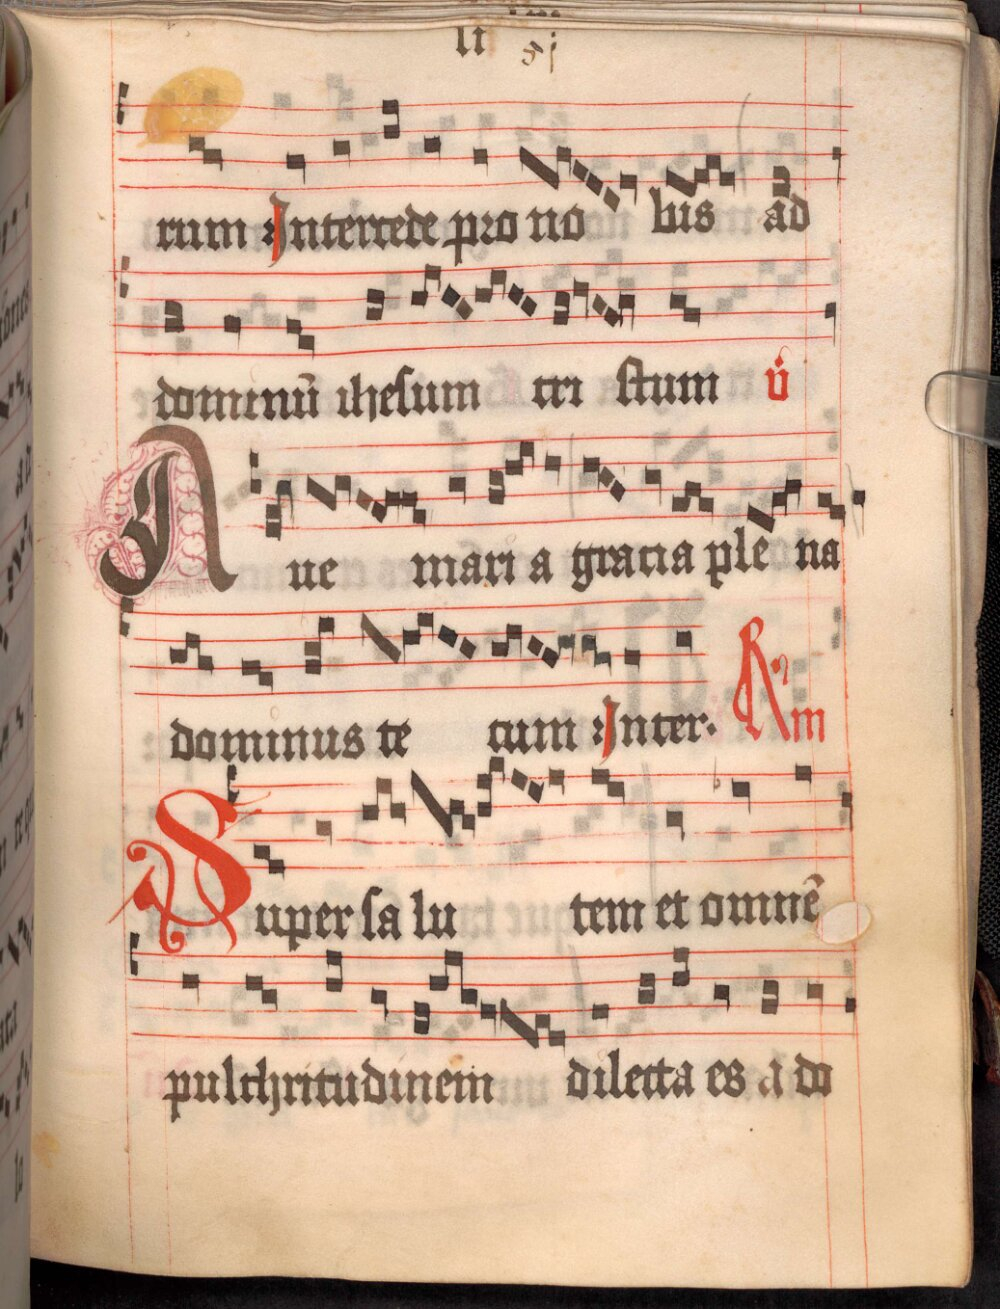 li 51
rum Intercede pro no bis ad
dominū ihesum cri stum v̇
Aue mari a gracia ple na
dominus te cum Inter· Am
Super sa lu tem et omnē
pulchritudinem dilecta es a do